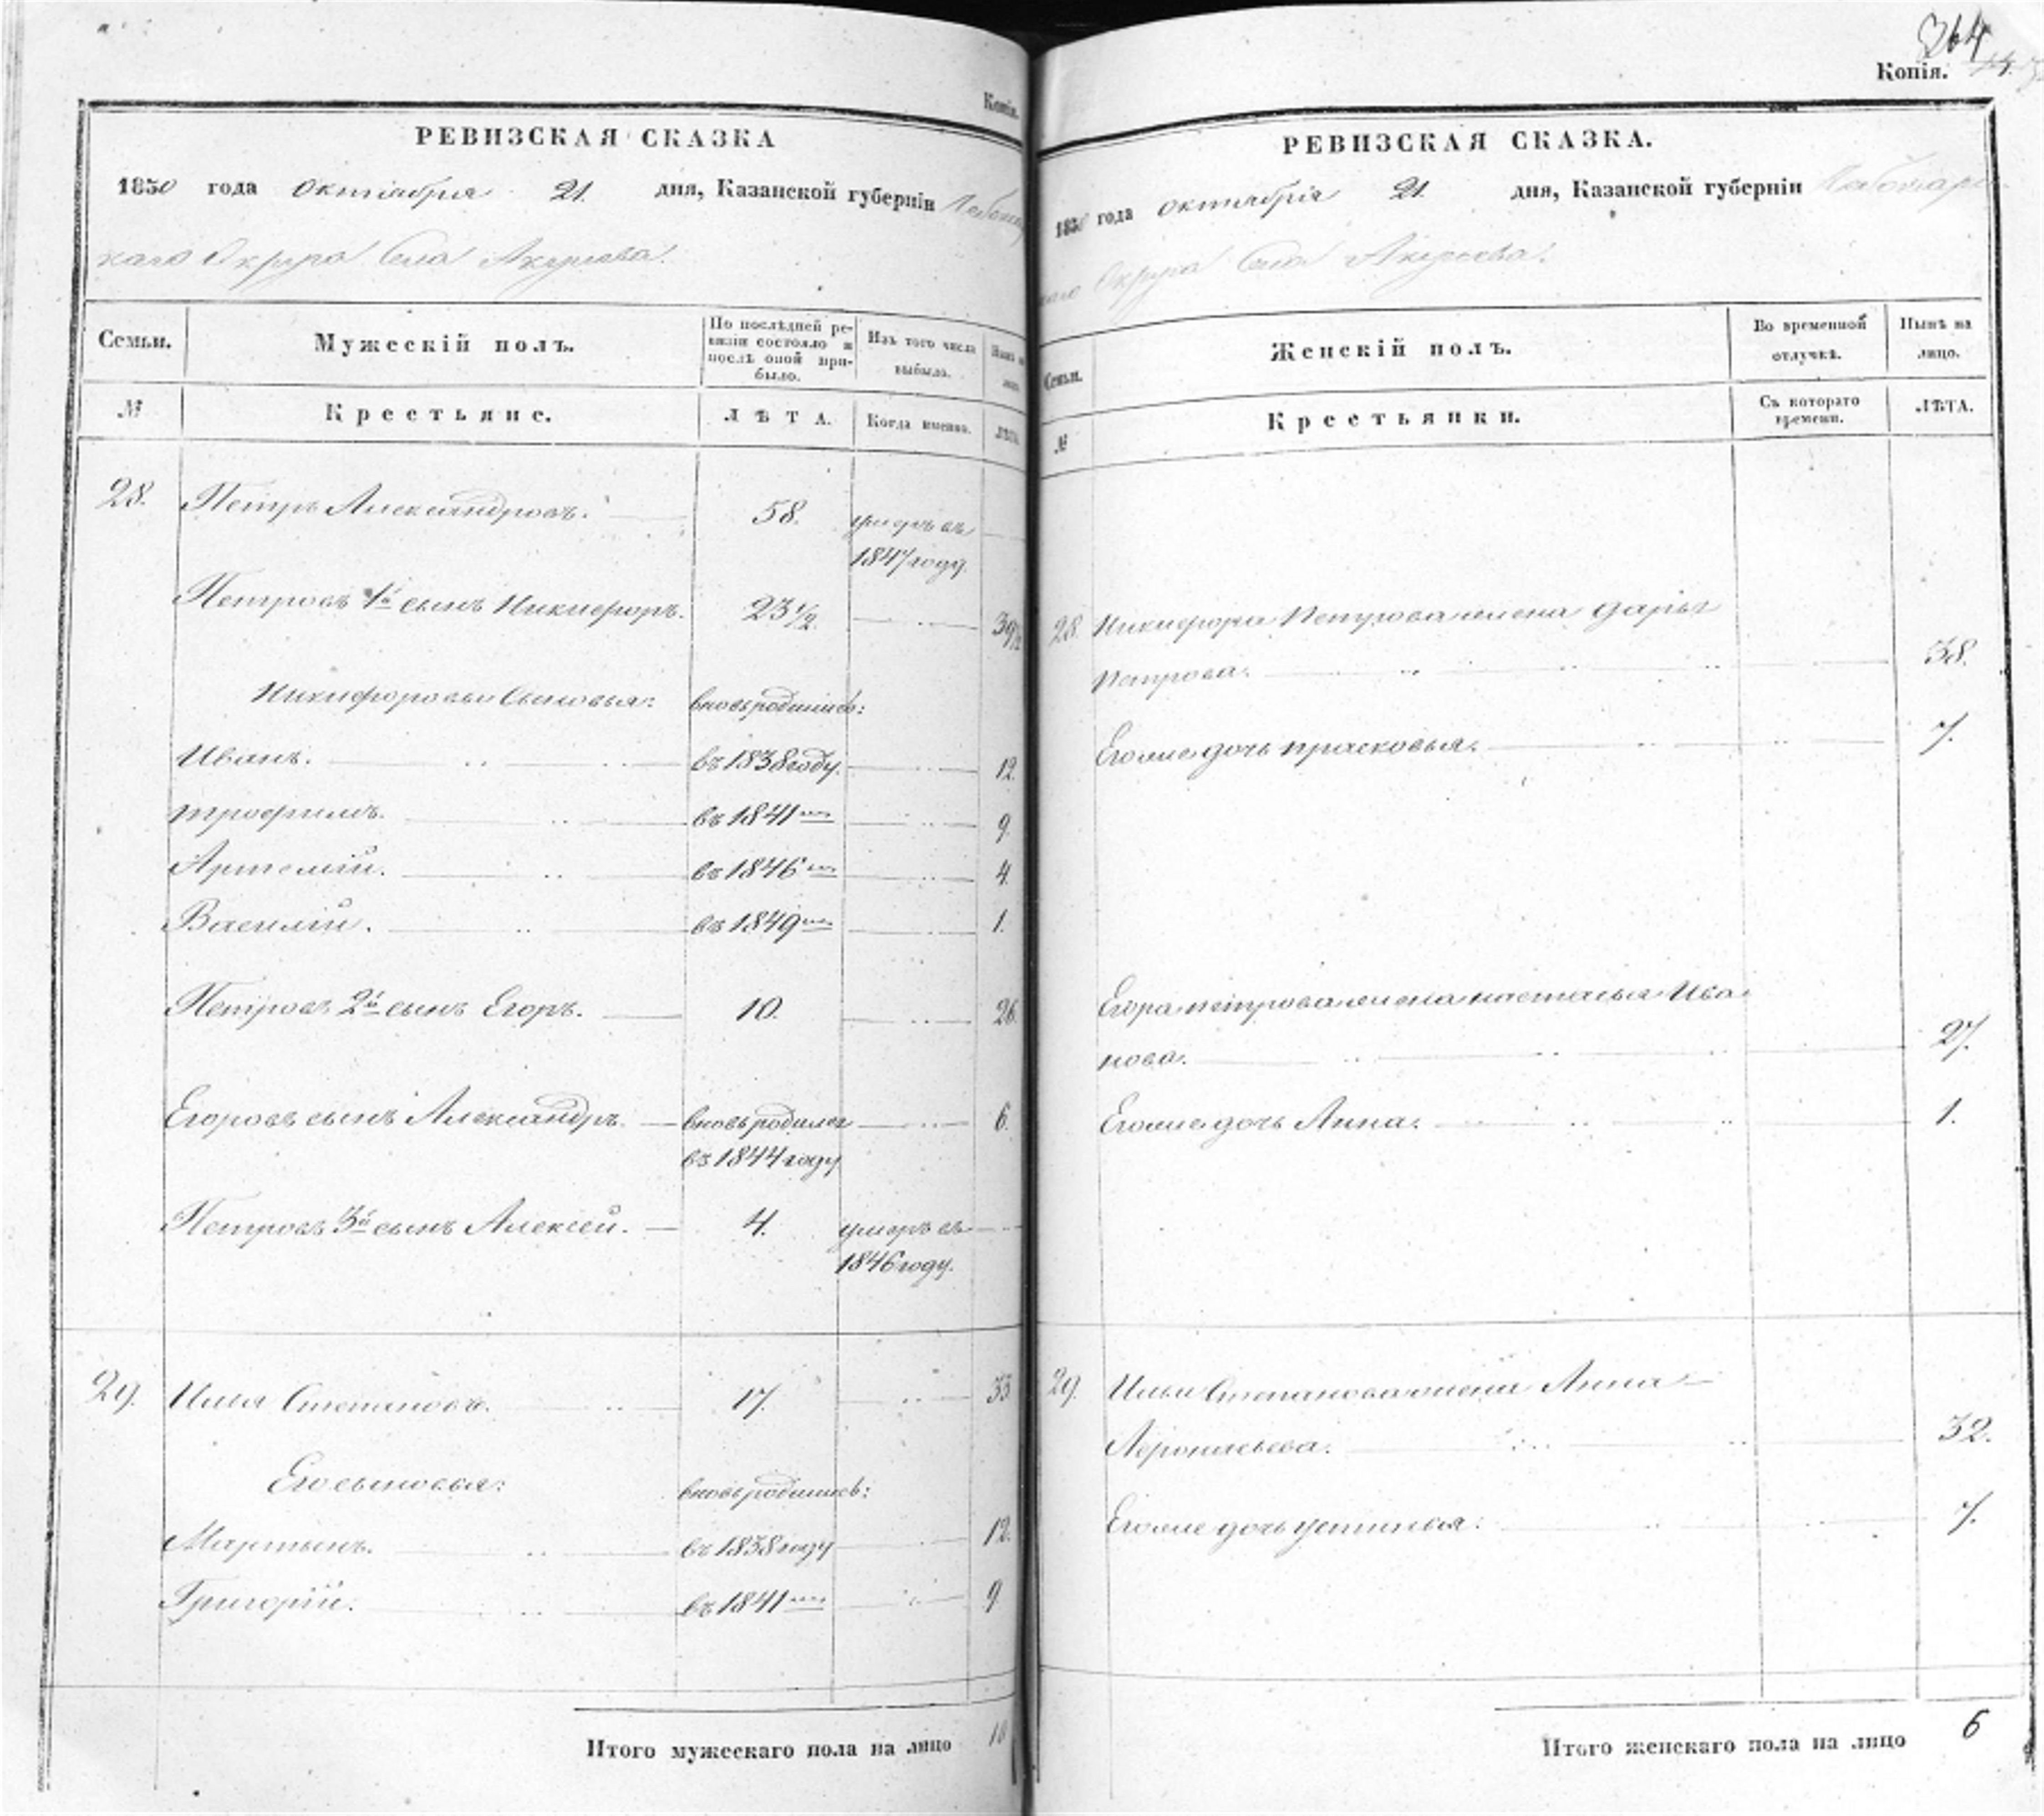 Копія.
РЕВИЗСКАЯ СКАЗКА
1850 года Октября 21. дня, Казанской губерніи
каго Округа Села Акулева.
Семьи.
Мужескій полъ.
По послѣдней ре-
визіи состояло и
послѣ оной при-
было.
Изъ того числа
выбыло.
Нынѣ на
лицо.
№
Крестьяне.
ЛѢТА.
Когда именно.
ЛѢТА.
28. Петръ Александровъ. 58. умеръ въ
1847 году.
Петровъ 1й сынъ Никифоръ. 23 1/2. 39 1/2
Никифоровы сыновья: вновь родились:
Иванъ. въ 1838 году. 12.
трофимъ. въ 1841мъ 9.
Артемій. въ 1846мъ 4.
Василій. въ 1849мъ 1.
Петровъ 2й сынъ Егоръ. 10. 26.
Егоровъ сынъ Александръ. вновь родился 6.
въ 1844 году
Петровъ 3й сынъ Алексей. 4. умеръ въ
1846 году.
29. Илья Степановъ. 17. 33
Его сыновья: вновь родились:
Мартынъ. въ 1838 году 12.
Григорій. въ 1841мъ 9
Итого мужескаго пола на лицо 10
364
Копія.
РЕВИЗСКАЯ СКАЗКА.
1850 года октября 21. дня, Казанской губерніи
каго Округа Села Акулева.
Семьи.
Женскій полъ.
Во временной
отлучкѣ.
Нынѣ на
лицо.
№
Крестьянки.
Съ котораго
времени.
ЛѢТА.
28. Никифора Петрова жена дарья
Петрова. 38.
Его же дочь прасковья. 7.
Егора петрова жена настасья Ива
нова. 27.
Его же дочь Анна. 1.
29. Ильи Степанова жена Анна
32.
Его же дочь устинья. 7.
Итого женскаго пола на лицо 6